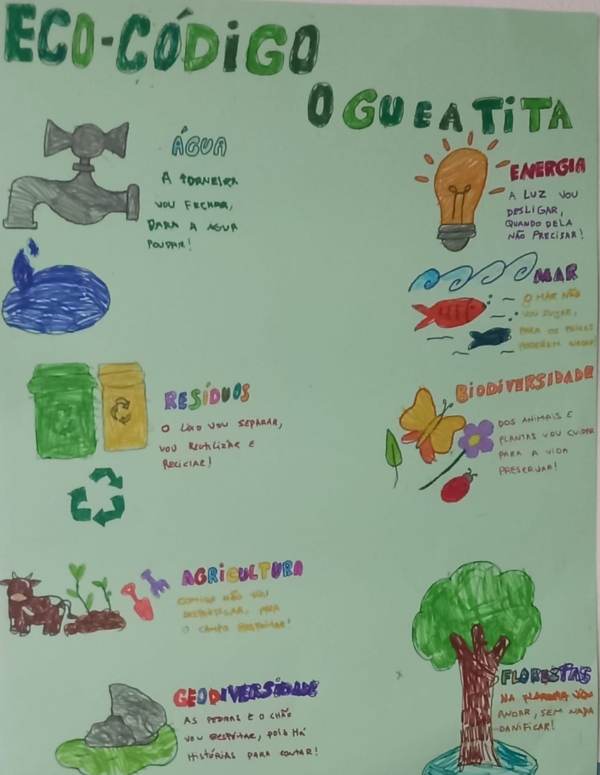 ECO-CÓDIGO
O GUEATITA
ÁGUA
A TORNEIRA
VOU FECHAR,
PARA A AGUA
POUPAR!
ENERGIA
A LUZ VOU
DESLIGAR,
QUANDO DELA
NÃO PRECISAR!
MAR
O MAR NÃO
VOU SUJAR,
PARA OS PEIXES
PODEREM NADAR
RESÍDUOS
O LIXO VOU SEPARAR,
VOU REUTILIZAR E
RECICLAR!
BIODIVERSIDADE
DOS ANIMAIS E
PLANTAS VOU CUIDAR
PARA A VIDA
PRESERVAR!
AGRICULTURA
COMIDA NÃO VOU
DESPERDIÇAR, PARA
O CAMPO RESPEITAR!
GEODIVERSIDADE
AS PEDRAS E O CHÃO
VOU RESPEITAR, POIS HÁ
HISTÓRIAS PARA CONTAR!
FLORESTAS
NA FLORESTA VOU
ANDAR, SEM NADA
DANIFICAR!